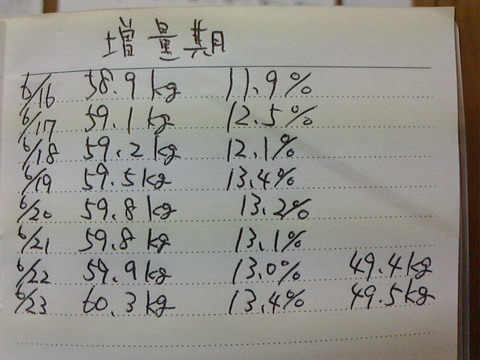 増量期
6/16 58.9kg 11.9%
6/17 59.1kg 12.5%
6/18 59.2kg 12.1%
6/19 59.5kg 13.4%
6/20 59.8kg 13.2%
6/21 59.8kg 13.1%
6/22 59.9kg 13.0% 49.4kg
6/23 60.3kg 13.4% 49.5kg